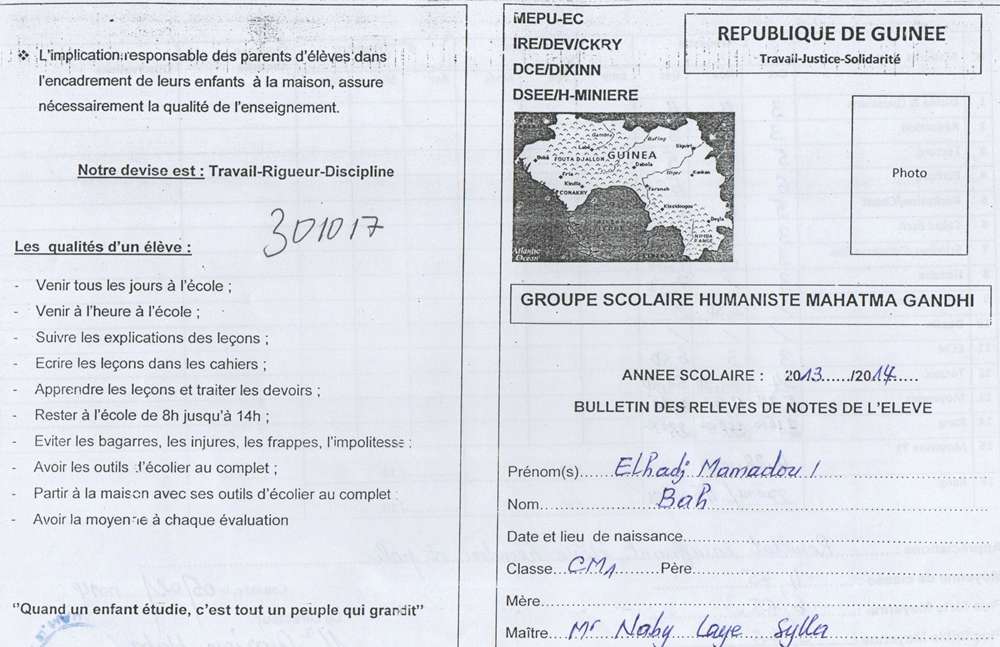 ❖ L'implication responsable des parents d'élèves dans
l'encadrement de leurs enfants à la maison, assure
nécessairement la qualité de l'enseignement.
Notre devise est : Travail-Rigueur-Discipline
301017
Les qualités d'un élève :
- Venir tous les jours à l'école ;
- Venir à l'heure à l'école ;
- Suivre les explications des leçons ;
- Ecrire les leçons dans les cahiers ;
- Apprendre les leçons et traiter les devoirs ;
- Rester à l'école de 8h jusqu'à 14h ;
- Eviter les bagarres, les injures, les frappes, l'impolitesse ;
- Avoir les outils d'écolier au complet ;
- Partir à la maison avec ses outils d'écolier au complet ;
- Avoir la moyenne à chaque évaluation
"Quand un enfant étudie, c'est tout un peuple qui grandit"
MEPU-EC
IRE/DEV/CKRY
DCE/DIXINN
DSEE/H-MINIERE
REPUBLIQUE DE GUINEE
Travail-Justice-Solidarité
Photo
Gambia
Bafing
Labé
GUINEA
Siguiri
Boké
FOUTA DJALLON
Dabola
Fria
Niger
Kankan
Kindia
Faranah
CONAKRY
Kissidougou
Beyla
NIMBA
RANGE
Atlantic
Ocean
GROUPE SCOLAIRE HUMANISTE MAHATMA GANDHI
ANNEE SCOLAIRE : 2013....../2014......
BULLETIN DES RELEVES DE NOTES DE L'ELEVE
Prénom(s).....Elhadj Mamadou 1
Nom.....Bah
Date et lieu de naissance.....
Classe...CM1.....Père.....
Mère.....
Maître...Mr Naby Laye Sylla